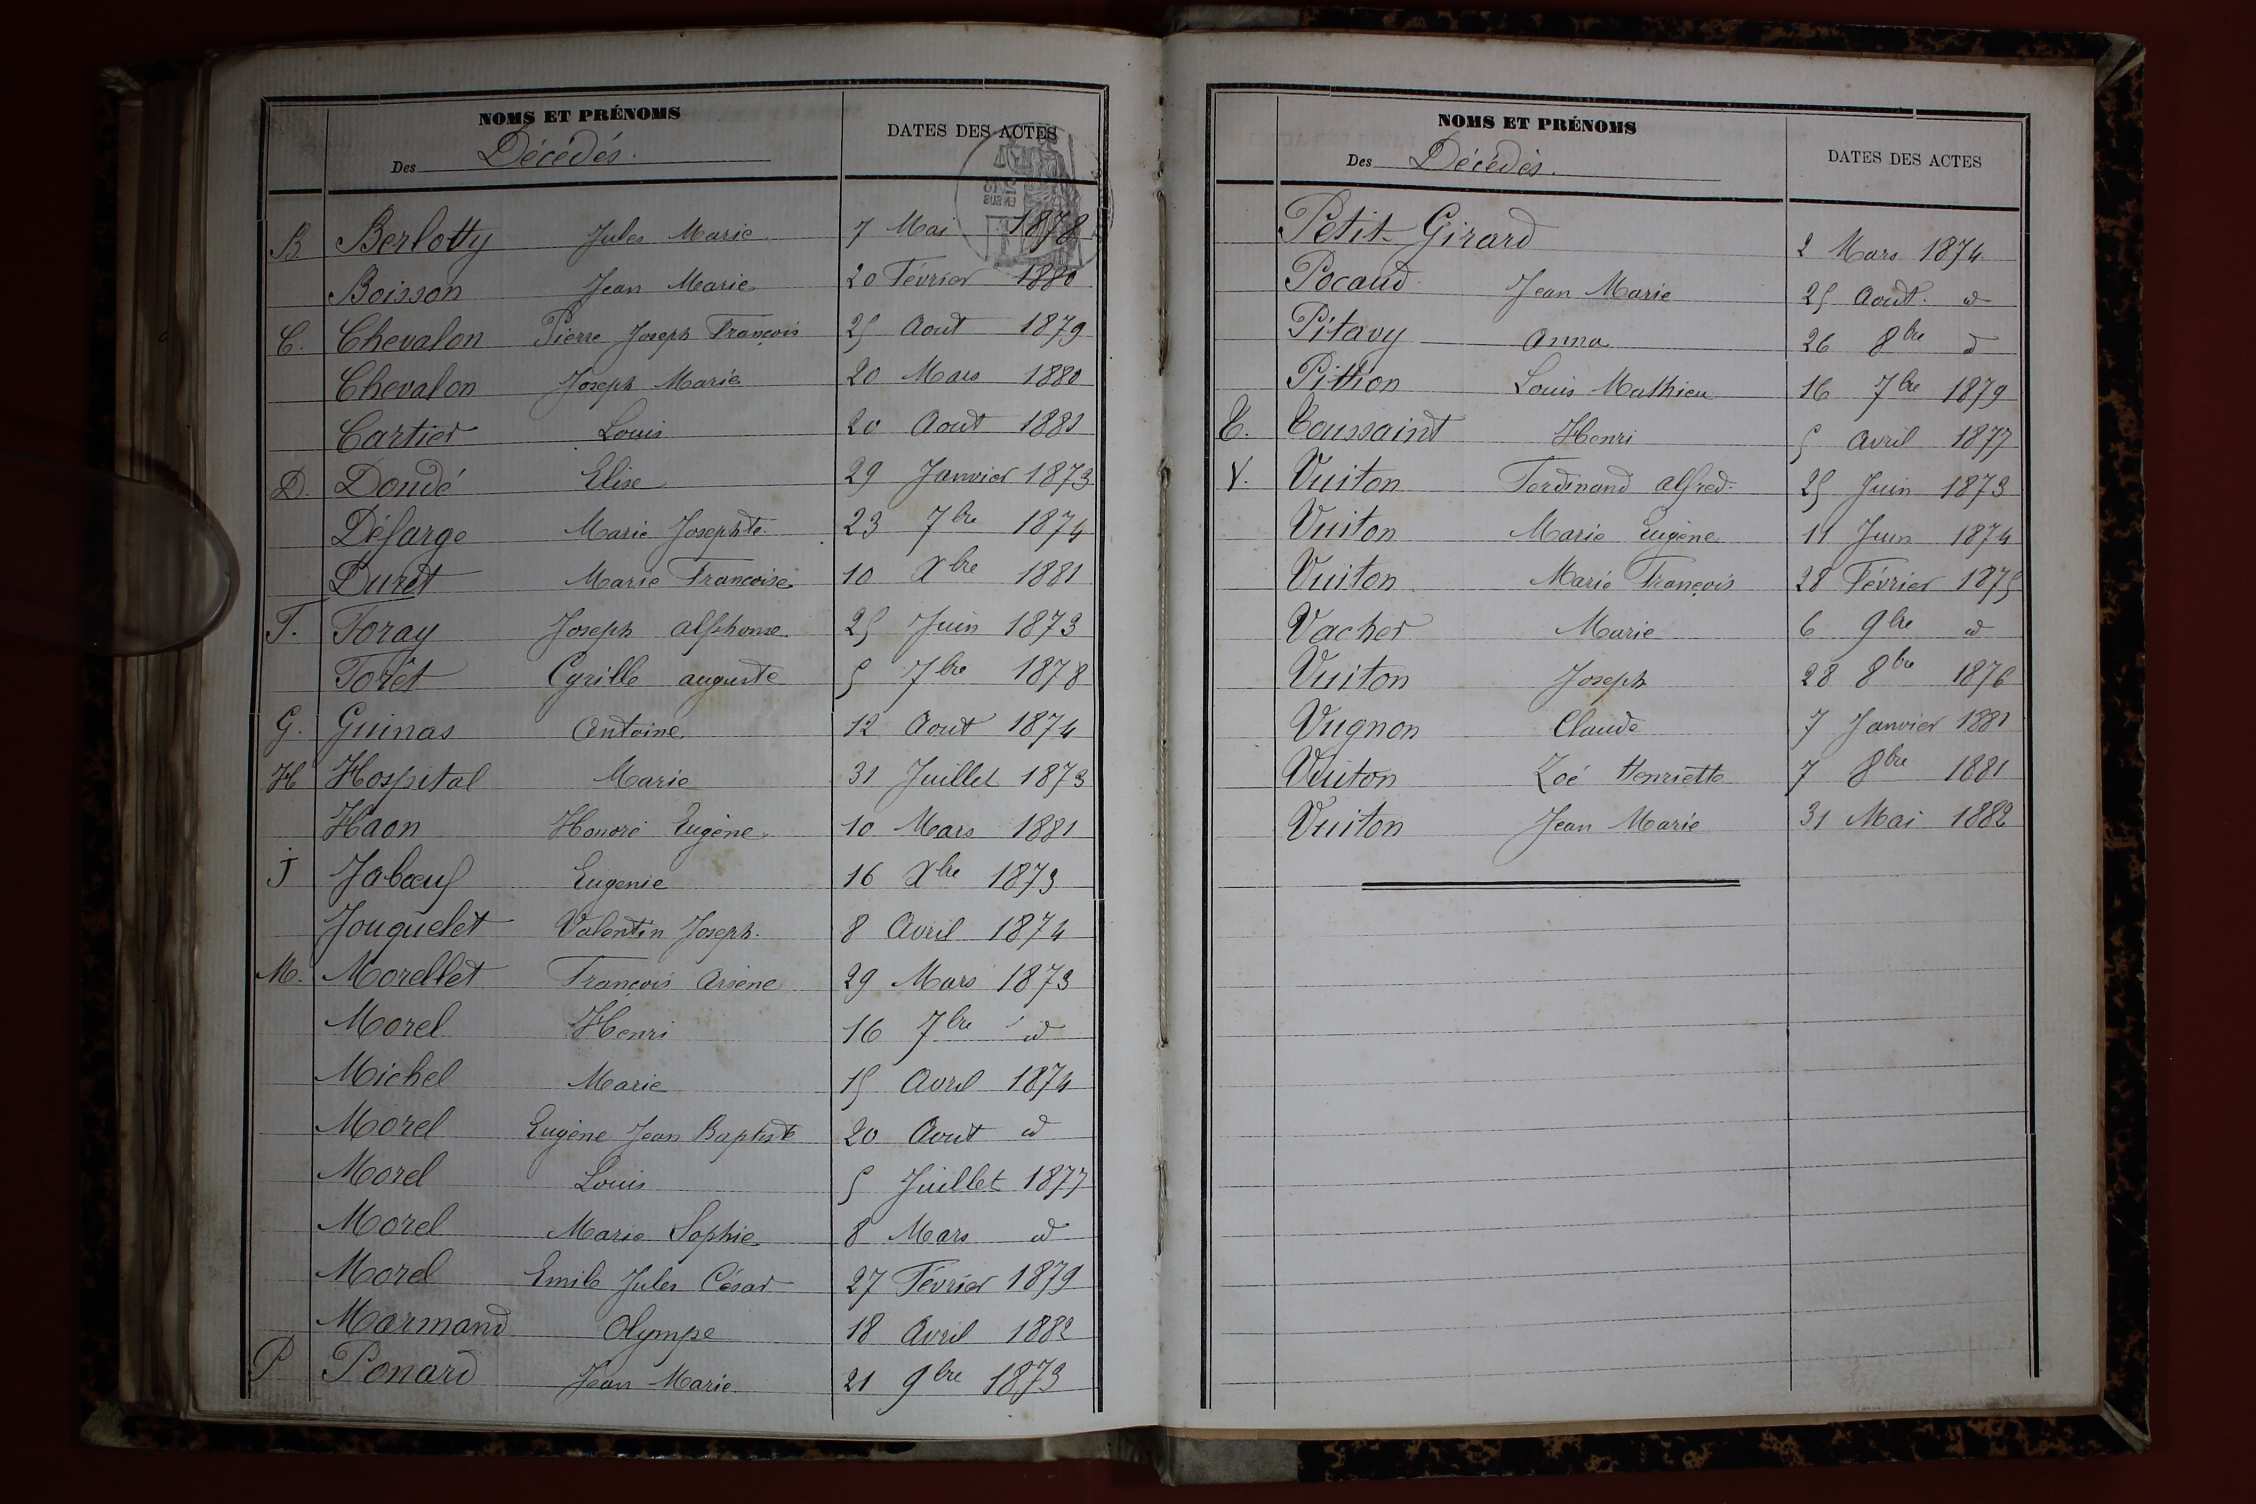 NOMS ET PRÉNOMS
Des Décédés.
DATES DES ACTES
B Berlotty Jules Marie 7 Mai 1878
Boisson Jean Marie 20 Février 1880
C. Chevalon Pierre Joseph François 25 Aout 1879
Chevalon Joseph Marie 20 Mars 1880
Cartier Louis 20 Aout 1881
D. Doudé Elise 29 Janvier 1873
Défarge Marie Josephte 23 7bre 1874
Duret Marie Françoise 10 Xbre 1881
F. Foray Joseph Alphonse 25 Juin 1873
Forêt Cyrille auguste 5 7bre 1878
G. Guinas Antoine 12 Aout 1874
H Hospital Marie 31 Juillet 1873
Haon Honoré Eugène 10 Mars 1881
J Jabœuf Eugenie 16 Xbre 1873
Jouguelet Valentin Joseph. 8 Avril 1874
M. Morellet François Arsène 29 Mars 1873
Morel Henri 16 7bre id
Michel Marie 15 Avril 1874
Morel Eugène Jean Baptiste 20 Aout id
Morel Louis 5 Juillet 1877
Morel Marie Sophie 8 Mars id
Morel Emile Jules César 27 Février 1879
Marmand Olympe 18 Avril 1882
P Ponard Jean Marie 21 9bre 1873
NOMS ET PRÉNOMS
Des Décédés.
DATES DES ACTES
Petit-Girard 2 Mars 1874
Pocaud Jean Marie 25 Aout. id
Pitavy Anna 26 8bre d
Pithion Louis Mathieu 16 7bre 1879
T. Toussaint Henri 5 Avril 1877
V. Vuiton Ferdinand Alfred. 25 Juin 1873
Vuiton Marie Eugène 11 Juin 1874
Vuiton Marie François 28 Février 1875
Vacher Marie 6 9bre id
Vuiton Joseph 28 8bre 1876
Vugnon Claude 7 Janvier 1881
Vuiton Zoé Henriette 7 8bre 1881
Vuiton Jean Marie 31 Mai 1882